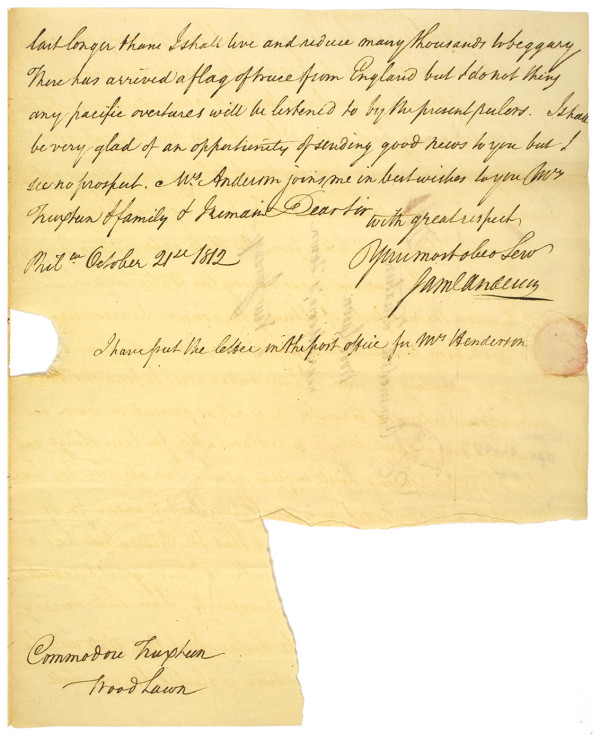 last longer thane I shall live and reduce many thousands to beggary
There has arrived a flag of truce from England but I do not think
any pacific overtures will be listened to by the present rulers. I shall
be very glad of an opportunity of sending good news to you but I
see no prospect. Mrs Anderson joins me in best wishes to you Mrs
Truxtun & family & I remain Dear Sir
with great respect
Phil.a October 21st 1812
Your most obed Serv
Saml Anderson
I have put the letter in the post office for Mrs Henderson
Commodore Truxtun
Wood Lawn